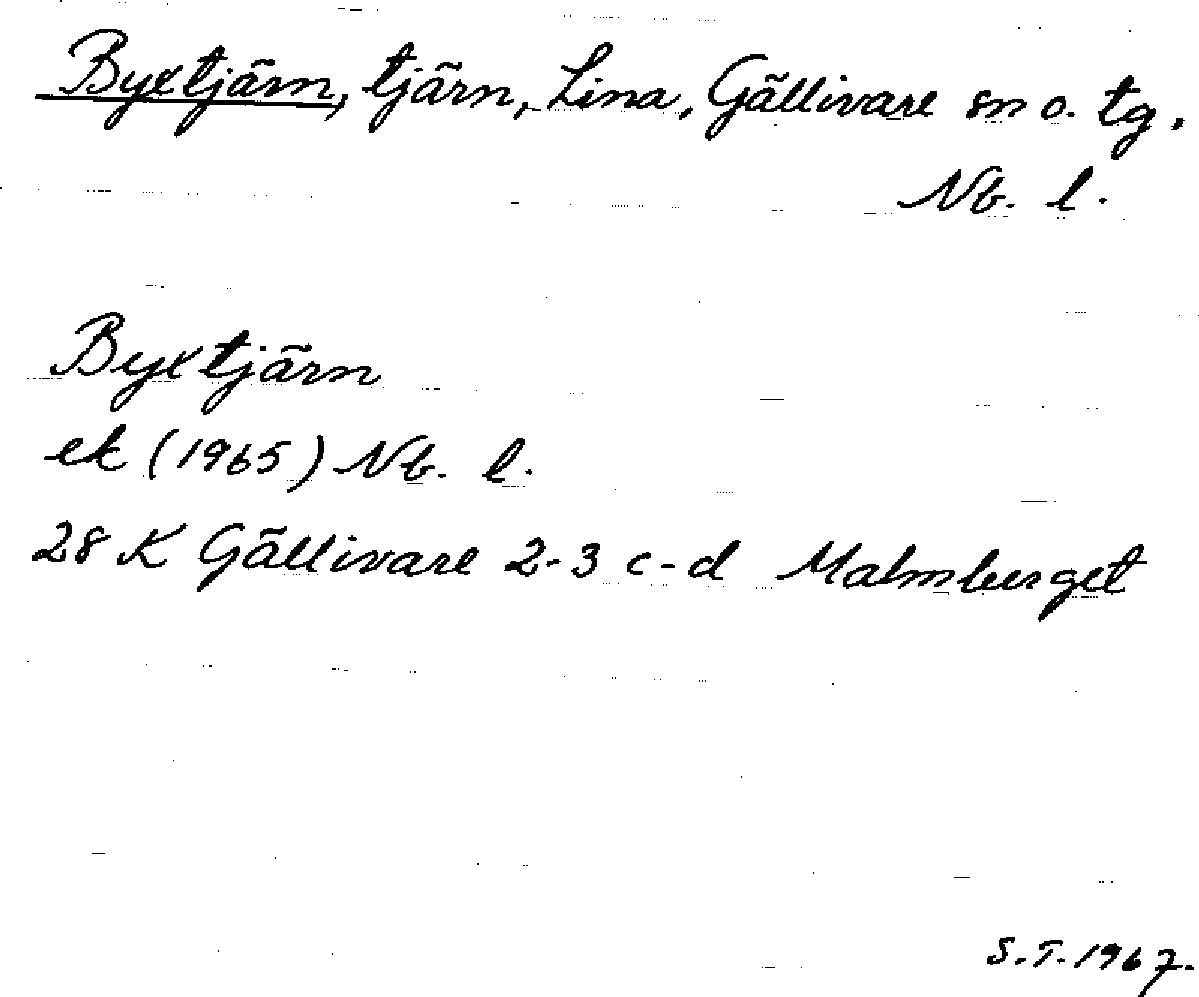 Byxtjärn, tjärn, Lina, Gällivare sn o. tg.
Nb. l.
Byxtjärn
ek (1965) Nb. l.
28 K Gällivare 2-3 c-d Malmberget
S.T. 1967.